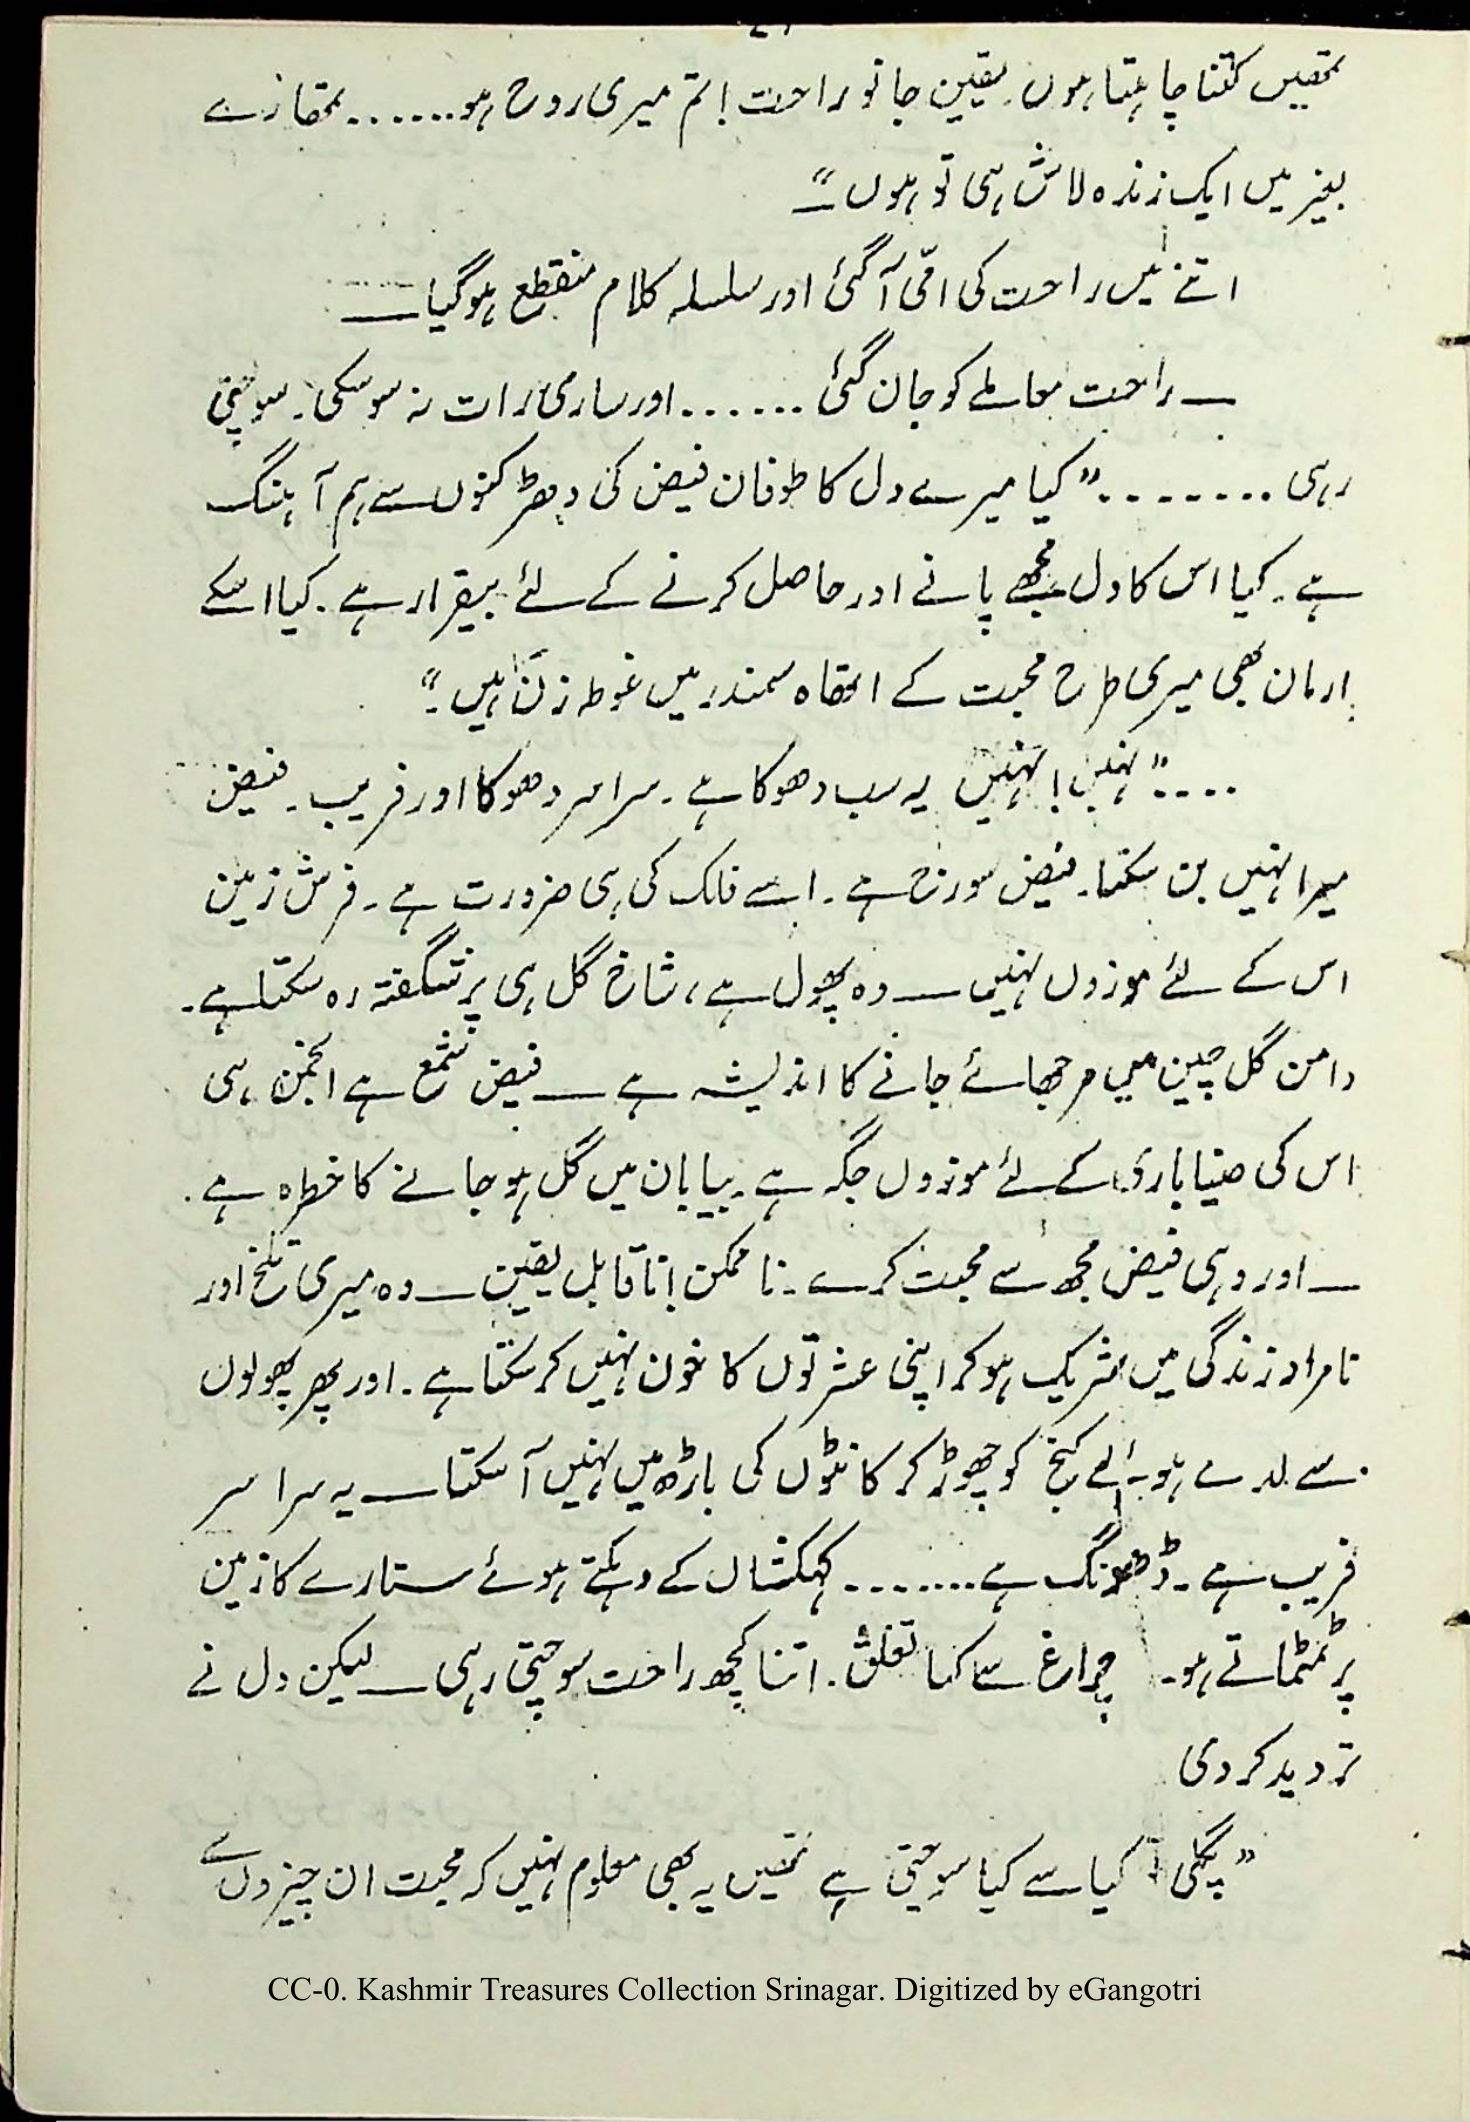 تمھیں کتنا چاہتا ہوں۔ یقین جانو راحت! تم میری روح ہو....... تمھارے
بغیر میں ایک زندہ لاش ہی تو ہوں“—
اتنے میں راحت کی امّی آ گئی اور سلسلہ کلام منقطع ہو گیا—
— راحت معاملے کو جان گئی ...... اور ساری رات نہ سو سکی۔ سوچتی
رہی ........ ”کیا میرے دل کا طوفان فیض کی دھڑکنوں سے ہم آہنگ
ہے۔ کیا اس کا دل مجھے پانے اور حاصل کرنے کے لئے بیقرار ہے۔ کیا اسکے
ارمان بھی میری طرح محبت کے اتھاہ سمندر میں غوطہ زن ہیں۔“
....”نہیں! نہیں یہ سب دھوکا ہے۔ سراسر دھوکا اور فریب۔ فیض
میرا نہیں بن سکتا۔ فیض سورج ہے۔ اسے فلک کی ہی ضرورت ہے۔ فرش زمین
اس کے لئے موزوں نہیں — وہ پھول ہے، شاخ گل ہی پر شگفتہ رہ سکتا ہے۔
دامن گل چین میں مرجھائے جانے کا اندیشہ ہے — فیض شمع ہے انجمن ہی
اس کی ضیا باری کے لئے موزوں جگہ ہے۔ بیابان میں گل ہو جانے کا خطرہ ہے۔
— اور وہی فیض مجھ سے محبت کرے۔ نا ممکن! ناقابل یقین — وہ میری تلخ اور
نامراد زندگی میں شریک ہو کر اپنی عشرتوں کا خون نہیں کر سکتا ہے۔ اور پھر پھولوں
سے لدے ہوئے کنج کو چھوڑ کر کانٹوں کی باڑھ میں نہیں آ سکتا — یہ سراسر
فریب ہے۔ ڈھونگ ہے........ کہکشاں کے دہکتے ہوئے ستارے کا زمین
پر ٹمٹماتے ہو۔ چراغ سے کیا تعلق۔ اتنا کچھ راحت سوچتی رہی — لیکن دل نے
تردید کر دی
”پگلی! کیا سے کیا سوچتی ہے تمھیں یہ بھی معلوم نہیں کہ محبت ان چیزوں سے
CC-0. Kashmir Treasures Collection Srinagar. Digitized by eGangotri